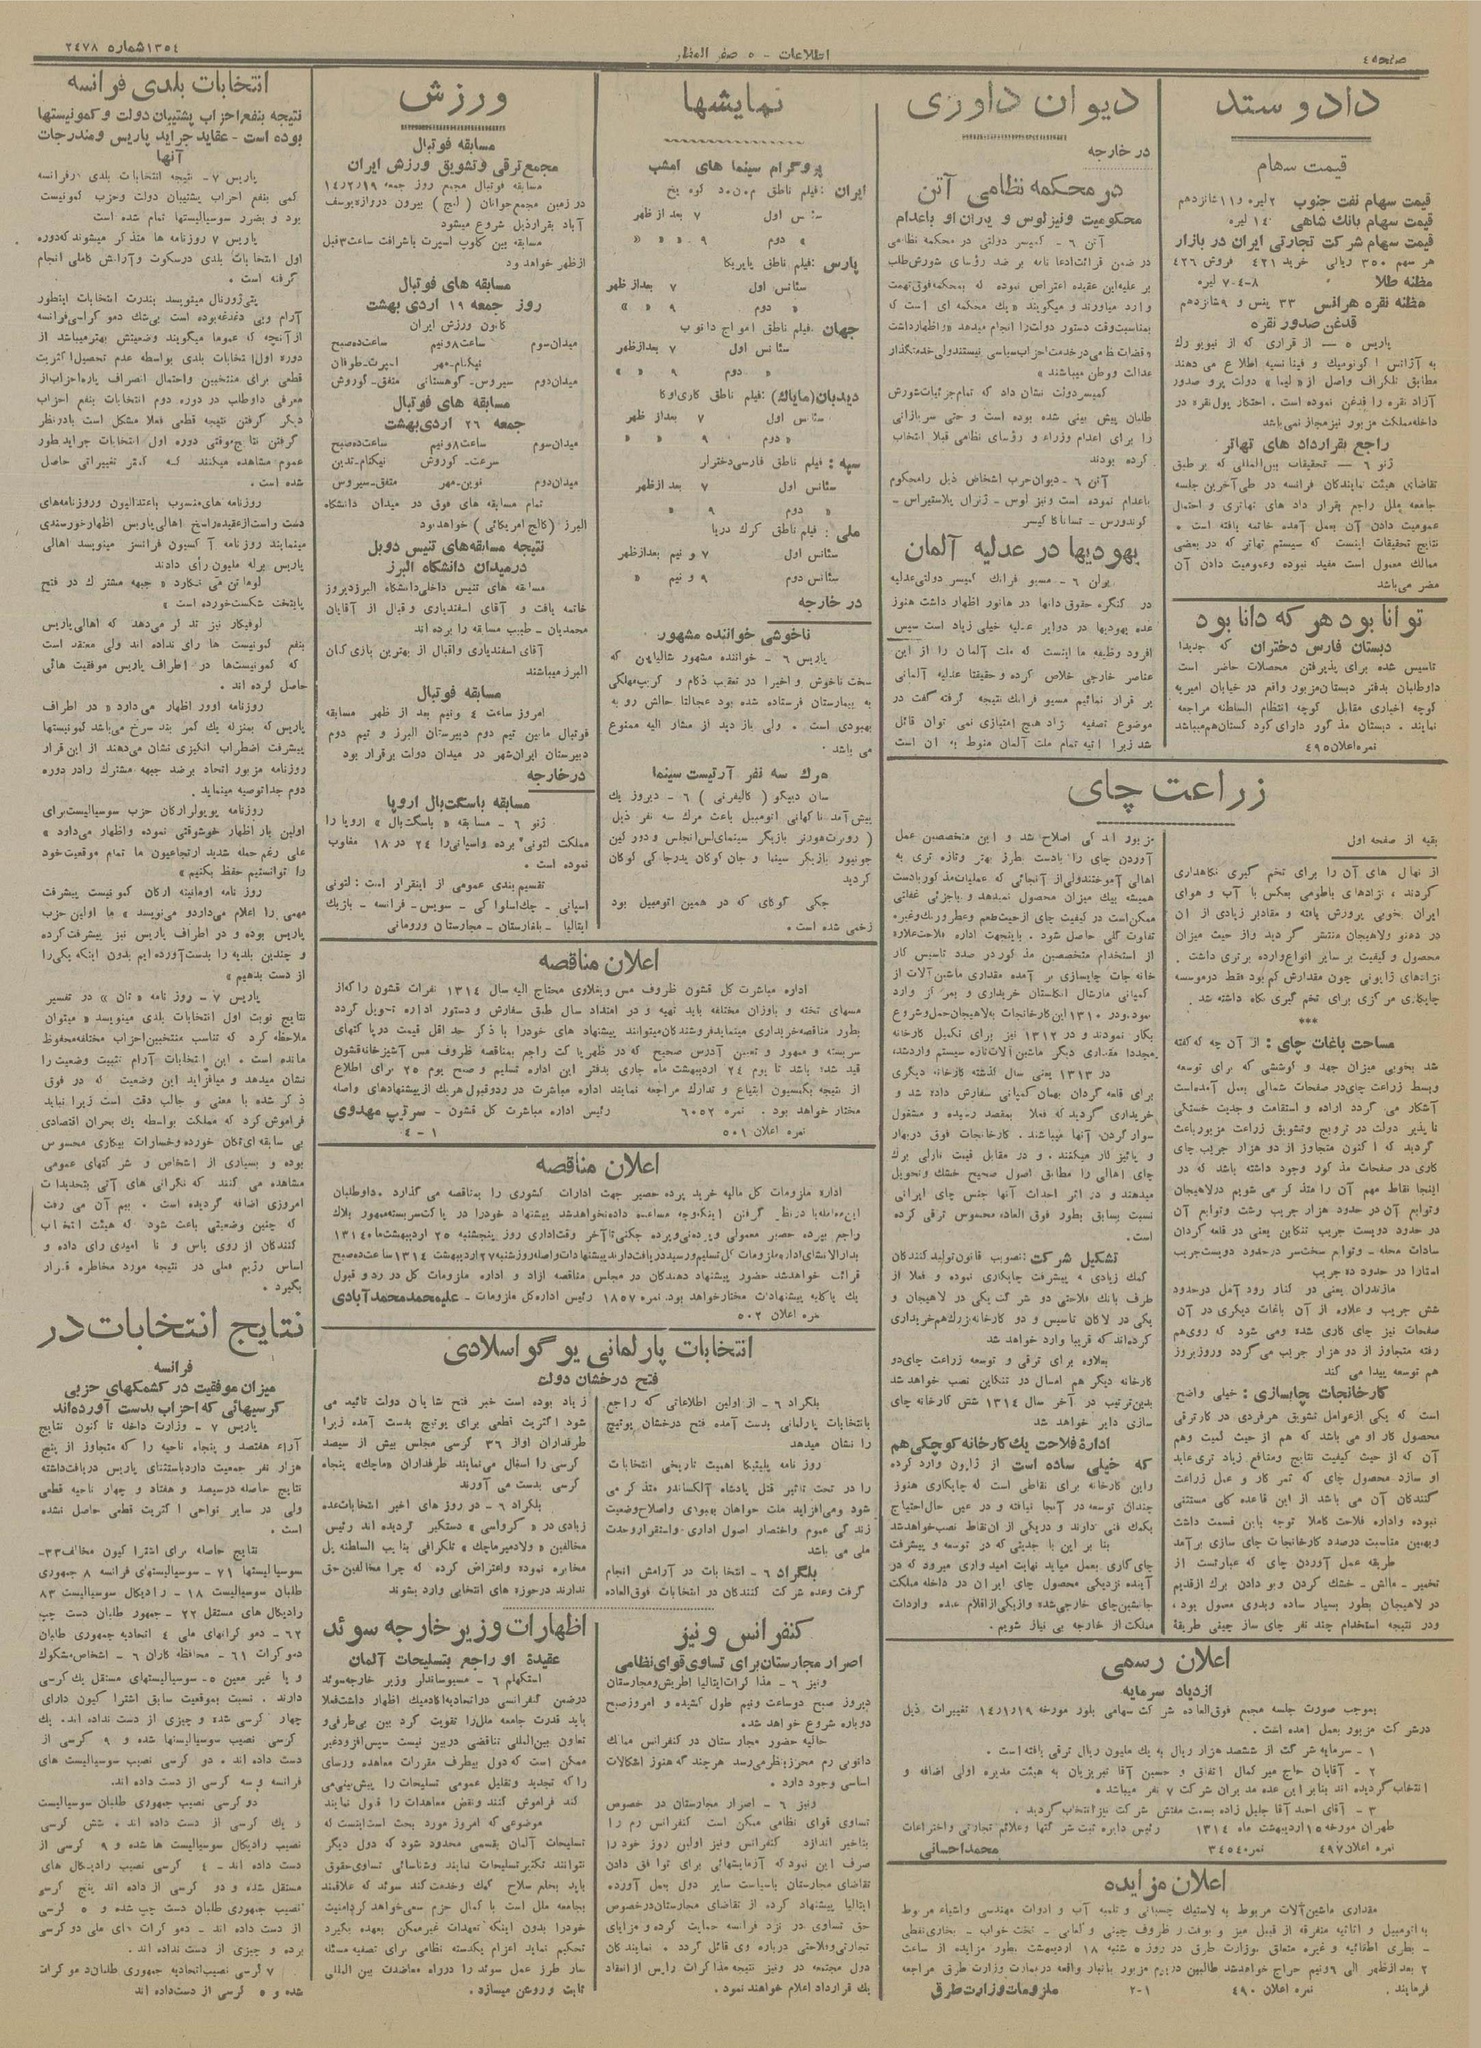 صفحه ٤
اطلاعات - ٥ صفر المظفر
١٣٥٤ شماره ٢٤٧٨
داد و ستد
قیمت سهام
قیمت سهام نفت جنوب ٢ لیره و ١١ شانزدهم
قیمت سهام بانك شاهی ١٤ لیره
قیمت سهام شرکت تجارتی ایران در بازار
هر سهم ٣٥٠ ریالی خرید ٤٢١ فروش ٤٢٦
مظنه طلا ٨-٤-٧ لیره
مظنه نقره هر انس ٣٣ پنس و ٩ شانزدهم
قدغن صدور نقره
پاریس ٥ — از قراری که از نیویورك
به آژانس اکونومیك و فینانسیه اطلاع می دهند
مطابق تلگراف واصل از « لیما » دولت پرو صدور
آزاد نقره را قدغن نموده است . احتکار پول نقره در
داخله مملکت مزبور نیز مجاز نمی باشد
راجع بقرارداد های تهاتر
ژنو ٦ — تحقیقات بین المللی که بر طبق
تقاضای هیئت نمایندگان فرانسه در طی آخرین جلسه
جامعه ملل راجع بقرار داد های تهاتری و احتمال
عمومیت دادن آن بعمل آمده خاتمه یافته است .
نتایج تحقیقات اینست که سیستم تهاتر که در بعضی
ممالك معمول است مفید نبوده و عمومیت دادن آن
مضر می باشد
توانا بود هر که دانا بود
دبستان فارس دختران که جدیدا
تاسیس شده برای پذیرفتن محصلات حاضر است
داوطلبان بدفتر دبستان مزبور واقع در خیابان امیریه
کوچه اخباری مقابل کوچه انتظام السلطنه مراجعه
نمایند . دبستان مذکور دارای کودکستان هم میباشد
نمره اعلان ٤٩٥
دیوان داوری
در خارجه
در محکمه نظامی آتن
محکومیت ونیزلوس و یاران او باعدام
آتن ٦ - کمیسر دولتی در محکمه نظامی
در ضمن قرائت ادعا نامه بر ضد رؤسای شورش طلب
بر علیه این عقیده اعتراض نموده که بمحکمه فوق تهمت
وارد میاورند و میگویند « یك محکمه ای است که
بمناسبت وقت دستور دولت را انجام میدهد » و اظهار داشت
« قضات نظامی در خدمت احزاب سیاسی نیستند ولی خدمتگذار
عدالت و وطن میباشند »
کمیسر دولت نشان داد که تمام جزئیات شورش
طلبان پیش بینی شده بوده است و حتی سربازانی
را برای اعدام وزراء و رؤسای نظامی قبلا انتخاب
کرده بودند
آتن ٦ - دیوان حرب اشخاص ذیل را محکوم
باعدام نموده است ونیزلوس - ژنرال پلاستیراس -
کوندورس - تساناکا کیسر
یهودیها در عدلیه آلمان
برلن ٦ - مسیو فرانك کمیسر دولتی عدلیه
در کنگره حقوق دانها در هانور اظهار داشت هنوز
عده یهودیها در دوایر عدلیه خیلی زیاد است سپس
افزود وظیفه ما اینست که ملت آلمان را از این
عناصر خارجی خلاص کرده و حقیقتا عدلیه آلمانی
بر قرار نمائیم مسیو فرانك نتیجه گرفته گفت در
موضوع تصفیه نژاد هیچ امتیازی نمی توان قائل
شد زیرا آتیه تمام ملت آلمان منوط به آن است
نمایشها
پروگرام سینما های امشب
ایران : فیلم ناطق کوه یخ
سئانس اول ٧ بعد از ظهر
« دوم ٩ « «
پارس : فیلم ناطق پاپریکا
سئانس اول ٧ بعد از ظهر
« دوم ٩ « »
جهان : فیلم ناطق امواج دانوب
سئانس اول ٧ بعد از ظهر
« دوم ٩ « »
دیدبان (مایاك) : فیلم ناطق کاری اوکا
سئانس اول ٧ بعد از ظهر
« دوم ٩ « «
سپه : فیلم ناطق فارسی دختر لر
سئانس اول ٧ بعد از ظهر
« دوم ٩ « »
ملی : فیلم ناطق گرك دریا
سئانس اول ٧ و نیم بعد از ظهر
سئانس دوم ٩ و نیم »
در خارجه
ناخوشی خواننده مشهور
پاریس ٦ - خواننده مشهور شالیاپن که
سخت ناخوش و اخیرا در تعقب ذکام و گریپ مهلکی
به بیمارستان فرستاده شده بود عجالتا حالش رو به
بهبودی است . ولی باز دید از مشار الیه ممنوع
می باشد .
مرك سه نفر آرتیست سینما
سان دییگو ( کالیفرنی ) ٦ - دیروز یك
پیش آمد ناگهانی اتومبیل باعث مرك سه نفر ذیل
( روبرت هورنر بازیگر سینمای لس انجلس و دور کین
جونیور بازیگر سینما و جان کوکان پدر جا کی کوکان
گردید
جکی کوکان که در همین اتومبیل بود
زخمی شده است .
ورزش
مسابقه فوتبال
مجمع ترقی و تشویق ورزش ایران
مسابقه فوتبال مجمع روز جمعه ١٤/٢/١٩
در زمین مجمع جوانان ( لج ) بیرون دروازه یوسف
آباد بقرار ذیل شروع میشود
مسابقه بین کلوب اسپرت با شرافت ساعت ٣ قبل
از ظهر خواهد بود
مسابقه های فوتبال
روز جمعه ١٩ اردی بهشت
کانون ورزش ایران
میدان سوم ساعت ٨ و نیم ساعت ده صبح
نیکنام - مهر اسپرت - طوفان
میدان دوم سیروس - کوهستانی متفق - کوروش
مسابقه های فوتبال
جمعه ٢٦ اردی بهشت
میدان سوم ساعت ٨ و نیم ساعت ده صبح
سرعت - کوروش نیکنام - تدین
میدان دوم نوین - مهر متفق - سیروس
تمام مسابقه های فوق در میدان دانشگاه
البرز (کالج امریکائی ) خواهد بود
نتیجه مسابقه های تنیس دوبل
در میدان دانشگاه البرز
مسابقه های تنیس داخلی دانشگاه البرز دیروز
خاتمه یافت و آقای اسفندیاری و اقبال از آقایان
محمدیان - طبیب مسابقه را برده اند
آقای اسفندیاری و اقبال از بهترین بازی کنان
البرز میباشند
مسابقه فوتبال
امروز ساعت ٤ ونیم بعد از ظهر مسابقه
فوتبال مابین تیم دوم دبیرستان البرز و تیم دوم
دبیرستان ایران شهر در میدان دولت برقرار بود
در خارجه
مسابقه باسکت بال اروپا
ژنو ٦ - مسابقه « باسکت بال » اروپا را
مملکت لتونی برده و اسپانی را ٢٤ در ١٨ مغلوب
نموده است .
تقسیم بندی عمومی از اینقرار است : لتونی
اسپانی - چك اسلواکی - سویس - فرانسه - بلژیك
ایتالیا - بلغارستان - مجارستان و رومانی .
انتخابات بلدی فرانسه
نتیجه بنفع احزاب پشتیبان دولت و کمونیستها
بوده است - عقاید جراید پاریس و مندرجات
آنها
پاریس ٧ - نتیجه انتخابات بلدی در فرانسه
کمی بنفع احزاب پشتیبان دولت و حزب کمونیست
بود و بضرر سوسیالیستها تمام شده است
پاریس ٧ روزنامه ها متذکر میشوند که دوره
اول انتخابات بلدی در سکوت و آرامش کاملی انجام
گرفته است .
پتی ژورنال مینویسد بندرت انتخابات اینطور
آرام و بی دغدغه بوده است بی شك دمو کراسی فرانسه
از آنچه که عموما میگویند وضعیتش بهتر میباشد از
دوره اول انتخابات بلدی بواسطه عدم تحصیل اکثریت
قطعی برای منتخبین و احتمال انصراف پاره احزاب از
معرفی داوطلب در دوره دوم انتخابات بنفع احزاب
دیگر گرفتن نتیجه قطعی فعلا مشکل است با در نظر
گرفتن نتایج موقتی دوره اول انتخابات جراید بطور
عموم مشاهده میکنند که کمتر تغییراتی حاصل
شده است .
روزنامه های منسوب باعتدالیون و روزنامه های
دست راست از عقیده راسخ اهالی پاریس اظهار خورسندی
مینمایند روزنامه آکسیون فرانسز مینویسد اهالی
پاریس برله ملیون رأی دادند
لوماتن می نگارد « جبهه مشترك در فتح
پایتخت شکست خورده است »
لوفیگار نیز تذکر می دهد که اهالی پاریس
بنفع کمونیست ها رای نداده اند ولی معتقد است
که کمونیست ها در اطراف پاریس موفقیت هائی
حاصل کرده اند .
روزنامه اوور اظهار می دارد « در اطراف
پاریس که بمنزله یك کمر بند سرخ می باشد کمونیستها
پیشرفت اضطراب انگیزی نشان می دهند از این قرار
روزنامه مزبور اتحاد بر ضد جبهه مشترك را در دوره
دوم جدا توصیه مینماید .
روزنامه پوپولر ارگان حزب سوسیالیست برای
اولین بار اظهار خوشوقتی نموده و اظهار می دارد «
علی رغم حمله شدید ارتجاعیون ما تمام موقعیت خود
را توانستیم حفظ بکنیم »
روزنامه اومانیته ارگان کمونیست پیشرفت
مهمی را اعلام می دارد و می نویسد « ما اولین حزب
پاریس بوده و در اطراف پاریس نیز پیشرفت کرده
و چندین بلدیه را بدست آورده ایم بدون اینکه یکی را
از دست بدهیم »
پاریس ٧ - روز نامه « تان » در تفسیر
نتایج نوبت اول انتخابات بلدی مینویسد « میتوان
ملاحظه کرد که تناسب منتخبین احزاب مختلفه محفوظ
مانده است . این انتخابات آرام تثبیت وضعیت را
نشان میدهد و میافزاید این وضعیت که در فوق
ذکر شده با معنی و جالب دقت است زیرا نباید
فراموش کرد که مملکت بواسطه یك بحران اقتصادی
بی سابقه ای تکان خورده و خسارات بیکاری محسوس
بوده و بسیاری از اشخاص و شرکتهای عمومی
مشاهده می کنند که نگرانی های آتی بتحدیدات
امروزی اضافه گردیده است . بیم آن می رفت
که چنین وضعیتی باعث شود که هیئت انتخاب
کنندگان از روی یاس و نا امیدی رای داده و
اساس رژیم فعلی در نتیجه مورد مخاطره قرار
بگیرد .
زراعت چای
بقیه از صفحه اول
از نهال های آن را برای تخم گیری نگاهداری
کردند . نژادهای باطومی بعکس با آب و هوای
ایران بخوبی پرورش یافته و مقادیر زیادی از آن
در دهنو و لاهیجان منتشر گردید و از حیث میزان
محصول و کیفیت بر سایر انواع وارده برتری داشت .
نژادهای ژاپونی چون مقدارش کم بود فقط در موسسه
چایکاری مرکزی برای تخم گیری نگاه داشته شد .
***
مساحت باغات چای : از آن چه که گفته
شد بخوبی میزان جهد و کوششی که برای توسعه
و بسط زراعت چای در صفحات شمالی بعمل آمده است
آشکار می گردد اراده و استقامت و جدیت خستگی
ناپذیر دولت در ترویج و تشویق زراعت مزبور باعث
گردید که اکنون متجاوز از دو هزار جریب چای
کاری در صفحات مذکور وجود داشته باشد که در
اینجا نقاط مهم آن را متذکر می شویم در لاهیجان
و توابع آن در حدود هزار جریب رشت و توابع آن
در حدود دویست جریب تنکابن یعنی در قلعه گردان
سادات محله - و توابع سخت سر در حدود دویست جریب
آستارا در حدود ده جریب
مازندران یعنی در کنار رود آمل در حدود
شش جریب و علاوه از آن باغات دیگری در آن
صفحات نیز چای کاری شده و می شود که روی هم
رفته متجاوز از دو هزار جریب می گردد و روز بروز
هم توسعه پیدا می کند
کارخانجات چایسازی : خیلی واضح
است که یکی از عوامل تشویق هر فردی در کار ترقی
محصول کار او می باشد که هم از حیث کمیت و هم
آن که از حیث کیفیت نتایج و منافع زیاد تری عاید
او سازد محصول چای که ثمر کار و عمل زراعت
کنندگان آن می باشد از این قاعده کلی مستثنی
نبوده و اداره فلاحت کاملا توجه باین قسمت داشت
و بهمین مناسبت در صدد کارخانجات چای سازی برآمد
طریقه عمل آوردن چای که عبارتست از
تخمیر - مالش - خشك کردن و بو دادن برك از قدیم
در لاهیجان بطور بسیار ساده و بدوی معمول بود ،
و در نتیجه استخدام چند نفر چای ساز چینی طریقهٔ
مزبور اندکی اصلاح شد و این متخصصین عمل
آوردن چای را بدست بطرز بهتر و تازه تری به
اهالی آموختند ولی از آنجائی که عملیات مذکور بادست
همیشه بیك میزان محصول نمیدهد و با جزئی غفلتی
ممکن است در کیفیت چای از حیث طعم و عطر و رنك و غیره
تفاوت کلی حاصل شود . باینجهت اداره فلاحت علاوه
از استخدام متخصصین مذکور در صدد تاسیس کار
خانه جات چایسازی بر آمده مقداری ماشین آلات از
کمپانی مارشال انگلستان خریداری و بعد از وارد
نمود . و در ١٣١٠ این کارخانجات به لاهیجان حمل و شروع
بکار نمودند و در ١٣١٢ نیز برای تکمیل کارخانه
مجددا مقداری دیگر ماشین آلات تازه سیستم وارد شد .
در ١٣١٣ یعنی سال گذشته کارخانه دیگری
برای قلعه گردان بهمان کمپانی سفارش داده شد و
خریداری گردید که فعلا بمقصد رسیده و مشغول
سوار کردن آنها میباشند . کارخانجات فوق در بهار
و پائیز کار میکنند . و در مقابل قیمت نازلی برك
چای اهالی را مطابق اصول صحیح خشك و تحویل
میدهند و در اثر احداث آنها جنس چای ایرانی
نسبت بسابق بطور فوق العاده محسوس ترقی کرده
است .
تشکیل شرکت : تصویب قانون تولید کنندگان
کمك زیادی به پیشرفت چایکاری نموده و فعلا از
طرف بانك فلاحتی دو شرکت یکی در لاهیجان و
یکی در لاکان تاسیس و دو کارخانه بزرك هم خریداری
کرده اند که قریبا وارد خواهد شد
بعلاوه برای ترقی و توسعه زراعت چای دو
کارخانه دیگر هم امسال در تنکابن نصب خواهد شد
بدین ترتیب در آخر سال ١٣١٤ شش کارخانه چای
سازی دایر خواهد شد
ادارهٔ فلاحت یك کارخانه کوچکی هم
که خیلی ساده است از ژاپون وارد کرده
و این کارخانه برای نقاطی است که چایکاری هنوز
چندان توسعه در آنجا نیافته و در عین حال احتیاج
بکمك فنی دارند و در یکی از آن نقاط نصب خواهد شد
بنا بر این با جدیتی که در توسعه و پیشرفت
چای کاری بعمل میاید نهایت امیدواری میرود که در
آینده نزدیکی محصول چای ایران در داخله مملکت
جانشین چای خارجی شده و از یکی از اقلام عمده واردات
مملکت از خارجه بی نیاز شویم .
اعلان رسمی
ازدیاد سرمایه
بموجب صورت جلسه مجمع فوق العاده شرکت سهامی بلور مورخه ١٤/١/١٩ تغییرات ذیل
در شرکت مزبور بعمل آمده است .
١ - سرمایه شرکت از ششصد هزار ریال به یك ملیون ریال ترقی یافته است .
٢ - آقایان حاج میر کمال اتفاق و حسین آقا تبریزیان به هیئت مدیره اولی اضافه و
انتخاب گردیده اند بنابر این عده مدیران شرکت ٧ نفر میباشد .
٣ - آقای احمد آقا جلیل زاده بسمت مفتش شرکت نیز انتخاب گردید .
طهران مورخه ١٥ اردیبهشت ماه ١٣١٤ رئیس دایره ثبت شرکتها و علائم تجارتی و اختراعات
نمره اعلان ٤٩٧ نمره ٣٤٥٤ محمد احسانی
اعلان مزایده
مقداری ماشین آلات مربوط به لاستیك چسبانی و تلمبه آب و ادوات مهندسی و اشیاء مربوط
به اتومبیل و اثاثیه متفرقه از قبیل میز و بوفت و ظروف چینی و لعابی - تخت خواب - بخاری نفطی
- بطری اطفائیه و غیره متعلق بوزارت طرق در روز ٥ شنبه ١٨ اردیبهشت بطور مزایده از ساعت
٢ بعد از ظهر الی ٦ و نیم حراج خواهد شد طالبین در یوم مزبور بانبار واقعه در عمارت وزارت طرق مراجعه
فرمایند . نمره اعلان ٤٩٠ ٢-١ ملزومات وزارت طرق
اعلان مناقصه
اداره مباشرت کل قشون ظروف مس و یغلاوی محتاج الیه سال ١٣١٤ نفرات قشون را که از
مسهای تخته و باوزان مختلفه باید تهیه و در امتداد سال طبق سفارش و دستور اداره تحویل گردد
بطور مناقصه خریداری مینماید فروشندگان میتوانند پیشنهاد های خود را با ذکر حد اقل قیمت در پاکتهای
سر بسته و ممهور و تعیین آدرس صحیح که در ظهر پاکت راجع بمناقصه ظروف مس آشپزخانه قشون
قید شده باشد تا یوم ٢٤ اردیبهشت ماه جاری بدفتر این اداره تسلیم و صبح یوم ٢٥ برای اطلاع
از نتیجه بکمیسیون ابتیاع و تدارك مراجعه نمایند اداره مباشرت در رد و قبول هر یك از پیشنهادهای واصله
مختار خواهد بود . نمره ٦٠٥٢ رئیس اداره مباشرت کل قشون - سرتیپ مهدوی
نمره اعلان ٥٠١ ١-٤
اعلان مناقصه
اداره ملزومات کل مالیه خرید پرده حصیر جهت ادارات کشوری را بمناقصه می گذارد . داوطلبان
این معامله با در نظر گرفتن اینکه وجه مساعده داده نخواهد شد پیشنهاد خود را در پاکت سر بسته ممهور بلاك
راجع بپرده حصیر معمولی و پرده نی و پرده جگنی تا آخر وقت اداری روز پنجشنبه ٢٥ اردیبهشت ماه ١٣١٤
بدارالانشای اداره ملزومات کل تسلیم و رسید دریافت دارند پیشنهادات واصله روز شنبه ٢٧ اردیبهشت ١٣١٤ ساعت ده صبح
قرائت خواهد شد حضور پیشنهاد دهندگان در مجلس مناقصه آزاد و اداره ملزومات کل در رد و قبول
یك یا کلیه پیشنهادات مختار خواهد بود . نمره ١٨٥٧ رئیس اداره کل ملزومات - علیمحمد محمدآبادی
نمره اعلان ٥٠٢
انتخابات پارلمانی یوگواسلاوی
فتح درخشان دولت
بلگراد ٦ - از اولین اطلاعاتی که راجع
بانتخابات پارلمانی بدست آمده فتح درخشان یوتیچ
را نشان میدهد
روز نامه پلیتیکا اهمیت تاریخی انتخابات
را در تحت تاثیر قتل پادشاه آلکساندر متذکر می
شود و می افزاید ملت خواهان بهبودی و اصلاح وضعیت
زندگی عموم و اختصار اصول اداری و استقرار وحدت
ملی می باشد
بلگراد ٦ - انتخابات در آرامش انجام
گرفت و عده شرکت کنندگان در انتخابات فوق العاده
زیاد بوده است خبر فتح شایان دولت تائید می
شود اکثریت قطعی برای یوتیچ بدست آمده زیرا
طرفداران او از ٣٦٠ کرسی مجلس بیش از سیصد
کرسی را اشغال می نمایند طرفداران « ماچك » پنجاه
کرسی بدست می آورند
بلگراد ٦ - در روز های اخیر انتخابات عده
زیادی در « کرواسی » دستگیر گردیده اند رئیس
مخالفین « ولادیمیر ماچك » تلگرافی بنایب السلطنه پل
مخابره نموده و اعتراض کرده که چرا مخالفین حق
ندارند در حوزه های انتخابی وارد بشوند
کنفرانس ونیز
اصرار مجارستان برای تساوی قوای نظامی
ونیز ٦ - مذاکرات ایتالیا اطریش و مجارستان
دیروز صبح دو ساعت و نیم طول کشیده و امروز صبح
دوباره شروع خواهد شد .
حالیه حضور مجارستان در کنفرانس ممالك
دانوبی رم محرز بنظر می رسد هر چند که هنوز اشکالات
اساسی وجود دارد .
ونیز ٦ - اصرار مجارستان در خصوص
تساوی قوای نظامی ممکن است کنفرانس رم را
بتاخیر اندازد کنفرانس ونیز اولین روز خود را
صرف این نمود که آزمایشهائی برای توافق دادن
تقاضای مجارستان با سیاست سایر دول بعمل آورده
ایتالیا پیشنهاد کرده از تقاضای مجارستان در خصوص
حق تساوی در نزد فرانسه حمایت کرده و مزایای
تجارتی و فلاحتی درباره وی قائل گردد . نمایندگان
دول مجتمعه در ونیز نتیجه مذاکرات را پس از انعقاد
یك قرارداد اعلام خواهند نمود .
اظهارات وزیر خارجه سوئد
عقیدهٔ او راجع بتسلیحات آلمان
استکهلم ٦ - مسیو ساندلر وزیر خارجه سوئد
در ضمن کنفرانسی در اتحادیه اکادمیك اظهار داشت فعلا
باید قدرت جامعه ملل را تقویت کرد بین بی طرفی و
تعاون بین المللی تناقضی در بین نیست سپس افزود غیر
ممکن است که دول بیطرف مقررات معاهده ورسای
را که تجدید و تقلیل عمومی تسلیحات را پیش بینی می
کند فراموش کنند و نقض معاهدات را قبول نمایند
موضوعی که امروز مورد بحث است اینست که
تسلیحات آلمان بقسمی محدود شود که دول دیگر
نتوانند تکثیر تسلیحات نمایند و شناسائی تساوی حقوق
باید بخلع سلاح کمك و خدمت کند سوئد که علاقمند
بجامعه ملل است با کمال حزم سعی خواهد کرد امنیت
خود را بدون اینکه تعهدات غیر ممکن بعهده بگیرد
تحکیم نماید اعزام یکدسته نظامی برای تصفیه مسئله
سار طرز عمل سوئد را در راه معاضدت بین المللی
ثابت و روشن میسازد .
نتایج انتخابات در
فرانسه
میزان موفقیت در کشمکهای حزبی
کرسیهائی که احزاب بدست آورده اند
پاریس ٧ - وزارت داخله تا کنون نتایج
آراء هفتصد و پنجاه ناحیه را که متجاوز از پنج
هزار نفر جمعیت دارد باستثنای پاریس دریافت داشته
نتایج حاصله در سیصد و هفتاد و چهار ناحیه قطعی
ولی در سایر نواحی اکثریت قطعی حاصل نشده
است .
نتایج حاصله برای اشترا کیون مخالف ٣٣-
سوسیالیستها ٧١ - سوسیالیستهای فرانسه ٨ جمهوری
طلبان سوسیالیست ١٨ - رادیکال سوسیالیست ٨٣
رادیکال های مستقل ٢٢ - جمهور طلبان دست چپ
٦٢ - دمو کراتهای ملی ٤ اتحادیه جمهوری طلبان
دمو کرات ٦١ - محافظه کاران ٦ - اشخاص مشکوك
و یا غیر معین ٥ - سوسیالیستهای مستقل یك کرسی
دارند . نسبت بموقعیت سابق اشترا کیون دارای
چهار کرسی شده و چیزی از دست نداده اند . یك
کرسی نصیب سوسیالیستها شده و ٩ کرسی از
دست داده اند . دو کرسی نصیب سوسیالیست های
فرانسه و سه کرسی از دست داده اند .
دو کرسی نصیب جمهوری طلبان سوسیالیست
و یك کرسی از دست داده اند . شش کرسی
نصیب رادیکال سوسیالیست ها شده و ٩ کرسی از
دست داده اند - ٤ کرسی نصیب رادیکال های
مستقل شده و دو کرسی از داده اند پنج کرسی
نصیب جمهوری طلبان دست چپ شده و ٥ کرسی
از دست داده اند - دمو کرات های ملی دو کرسی
برده و چیزی از دست نداده اند .
٧ کرسی نصیب اتحادیه جمهوری طلبان دمو کرات
شده و ٥ کرسی از دست داده اند